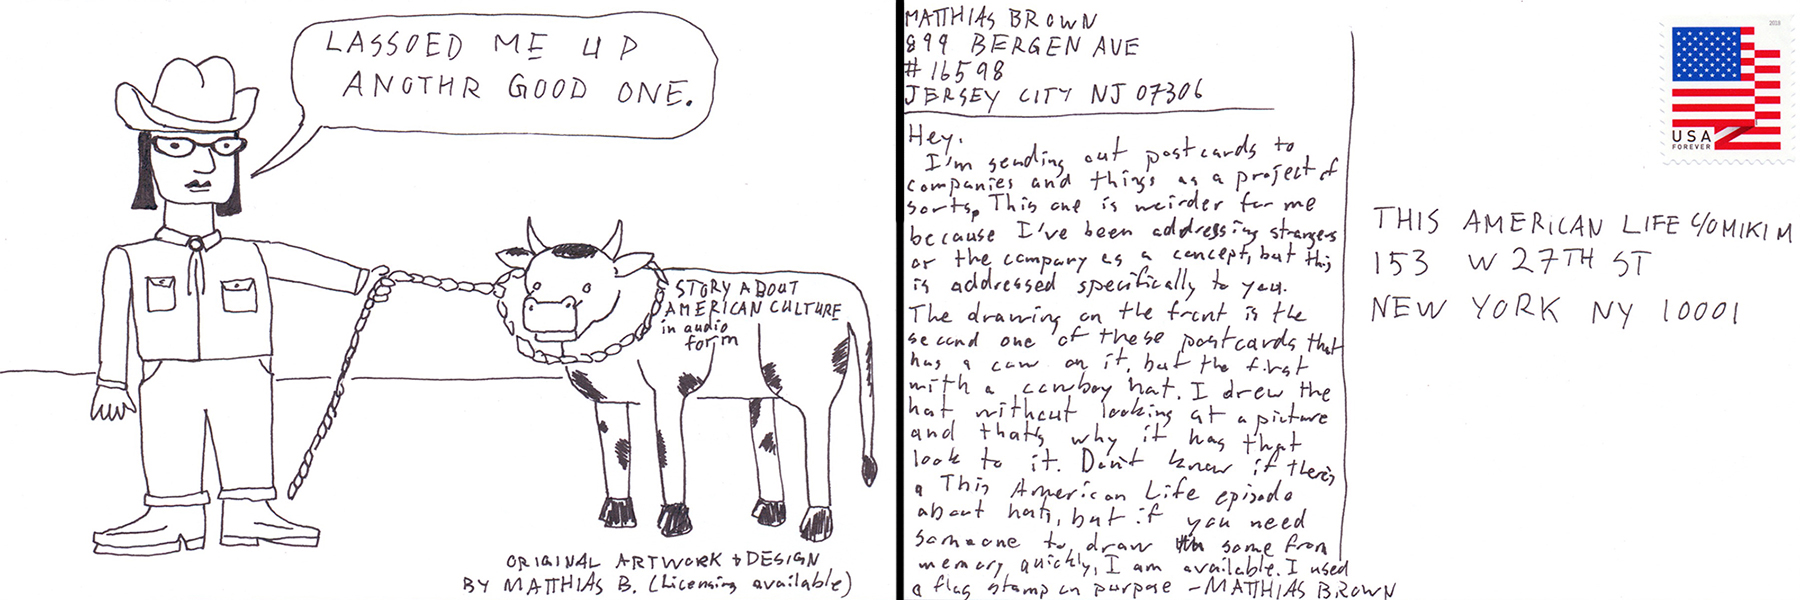 LASSOED ME UP
ANOTHR GOOD ONE.
STORY ABOUT
AMERICAN CULTURE
in audio
form
ORIGINAL ARTWORK + DESIGN
BY MATTHIAS B. (Licensing available)
MATTHIAS BROWN
899 BERGEN AVE
#16598
JERSEY CITY NJ 07306
Hey.
I'm sending out postcards to
companies and things as a project of
sorts, This one is weirder for me
because I've been addressing strangers
or the company as a concept, but this
is addressed specifically to you.
The drawing on the front is the
second one of these postcards that
has a cow on it, but the first
with a cowboy hat. I drew the
hat without looking at a picture
and thats why it has that
look to it. Don't know if there's
a This American Life episode
about hats, but if you need
someone to draw some from
memory quickly, I am available. I used
a flag stamp on purpose -MATTHIAS BROWN
2018
USA
FOREVER
THIS AMERICAN LIFE C/O MIKI M
153 W 27TH ST
NEW YORK NY 10001